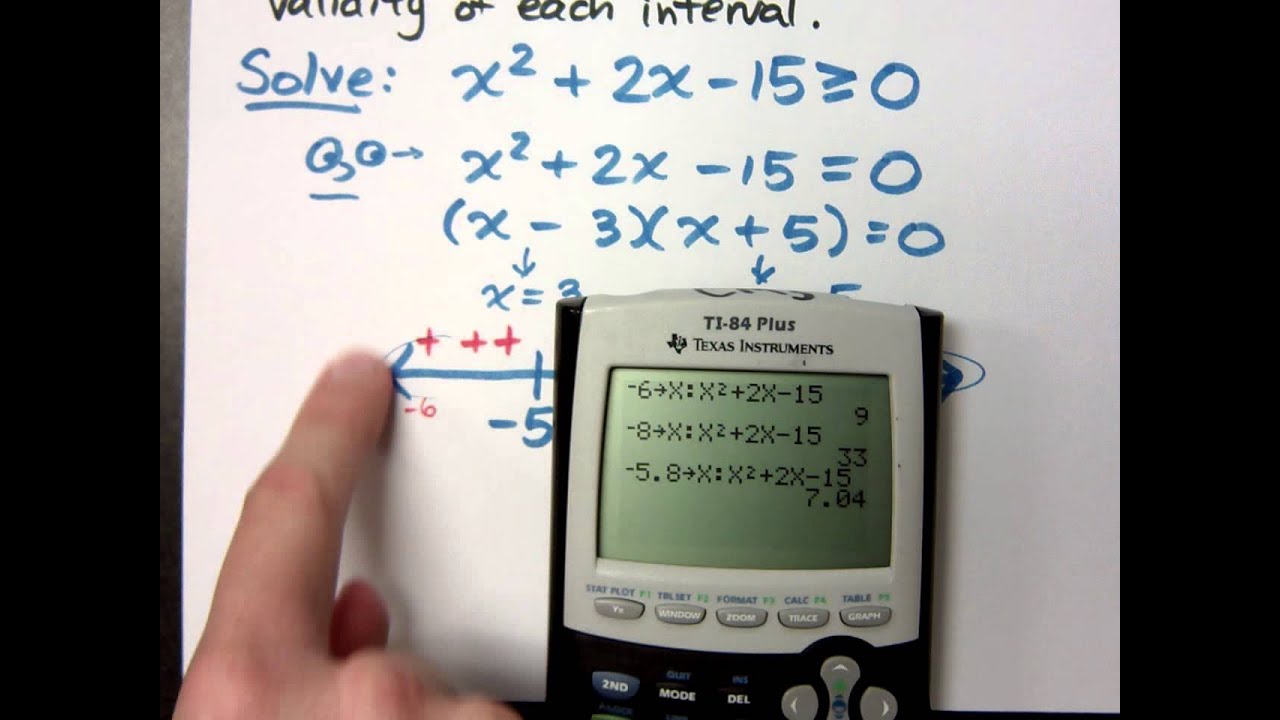 validity of each interval.
Solve: x² + 2x - 15 ≥ 0
x² + 2x - 15 = 0
(x - 3)(x + 5) = 0
↓ ↓
x = 3 5
+ + +
-6
-5
TI-84 Plus
TEXAS INSTRUMENTS
-6→X:X²+2X-15
9
-8→X:X²+2X-15
33
-5.8→X:X²+2X-15
7.04
STAT PLOT F1 TBLSET F2 FORMAT F3 CALC F4 TABLE F5
Y= WINDOW ZOOM TRACE GRAPH
QUIT INS
2ND MODE DEL